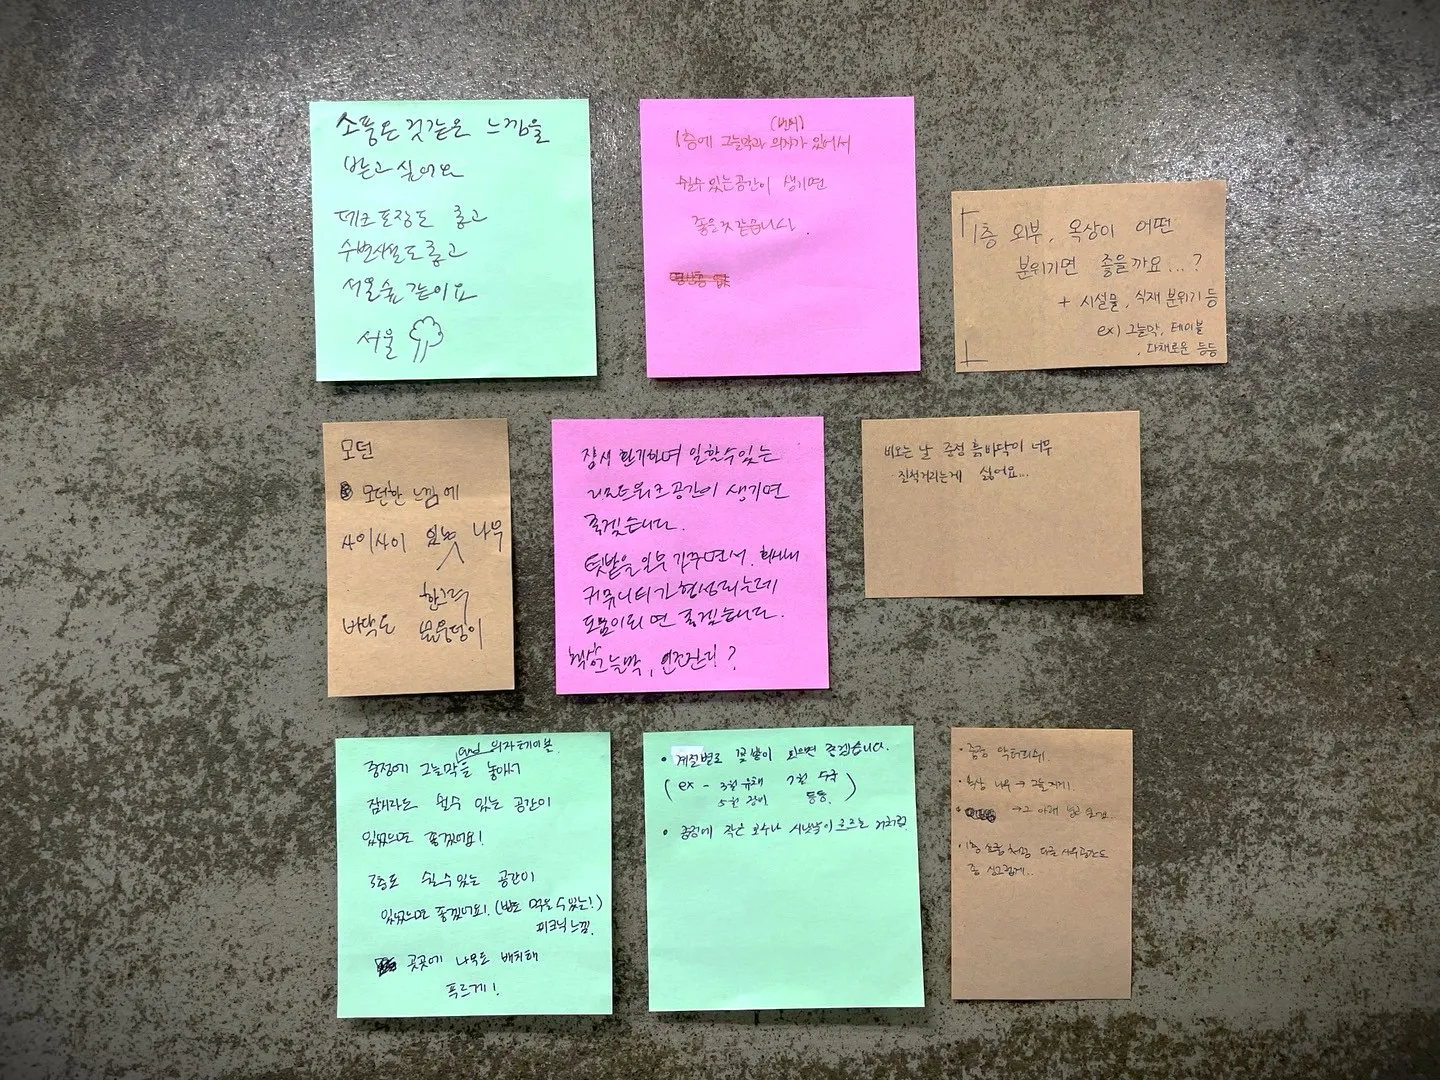 소풍온 것같은 느낌을
받고 싶어요
데크 포장도 좋고
수변시설도 좋고
서울숲 같이요
서울
(벤치)
1층에 그늘막과 의자가 있어서
쉴수 있는 공간이 생기면
좋은것 같습니다.
1층 외부, 옥상이 어떤
분위기면 좋을까요...?
+ 시설물, 식재 분위기 등
ex) 그늘막, 테이블
, 다채로운 등등
모던
모던한 느낌에
사이사이 나무
한그루
바닥도 물웅덩이
잠시 환기하며 일할수있는
리모트워크 공간이 생기면
좋겠습니다.
텃밭을 일부 가꾸면서, 회사내
커뮤니티가 형성되는데
도움이 되면 좋겠습니다.
책상 그늘막, 인조잔디?
비오는 날 중정 흙바닥이 너무
질척거리는게 싫어요...
and 의자테이블
중정에 그늘막을 놓아서
잠시라도 쉴수 있는 공간이
있었으면 좋겠어요!
3층도 쉴수있는 공간이
있었으면 좋겠어요! (밥도 먹을 수 있는!)
피크닉 느낌.
곳곳에 나무도 배치해
푸르게!
• 계절별로 꽃밭이 있으면 좋겠습니다.
(ex - 3월 유채 7월 수국
5월 장미 등등)
• 중정에 작은 호수나 시냇물이 흐르는 것처럼.
• 중정
• 옥상 나무 → 그늘지게.
→ 그 아래
• 1층 다른 사무공간도
좀 싱그럽게..